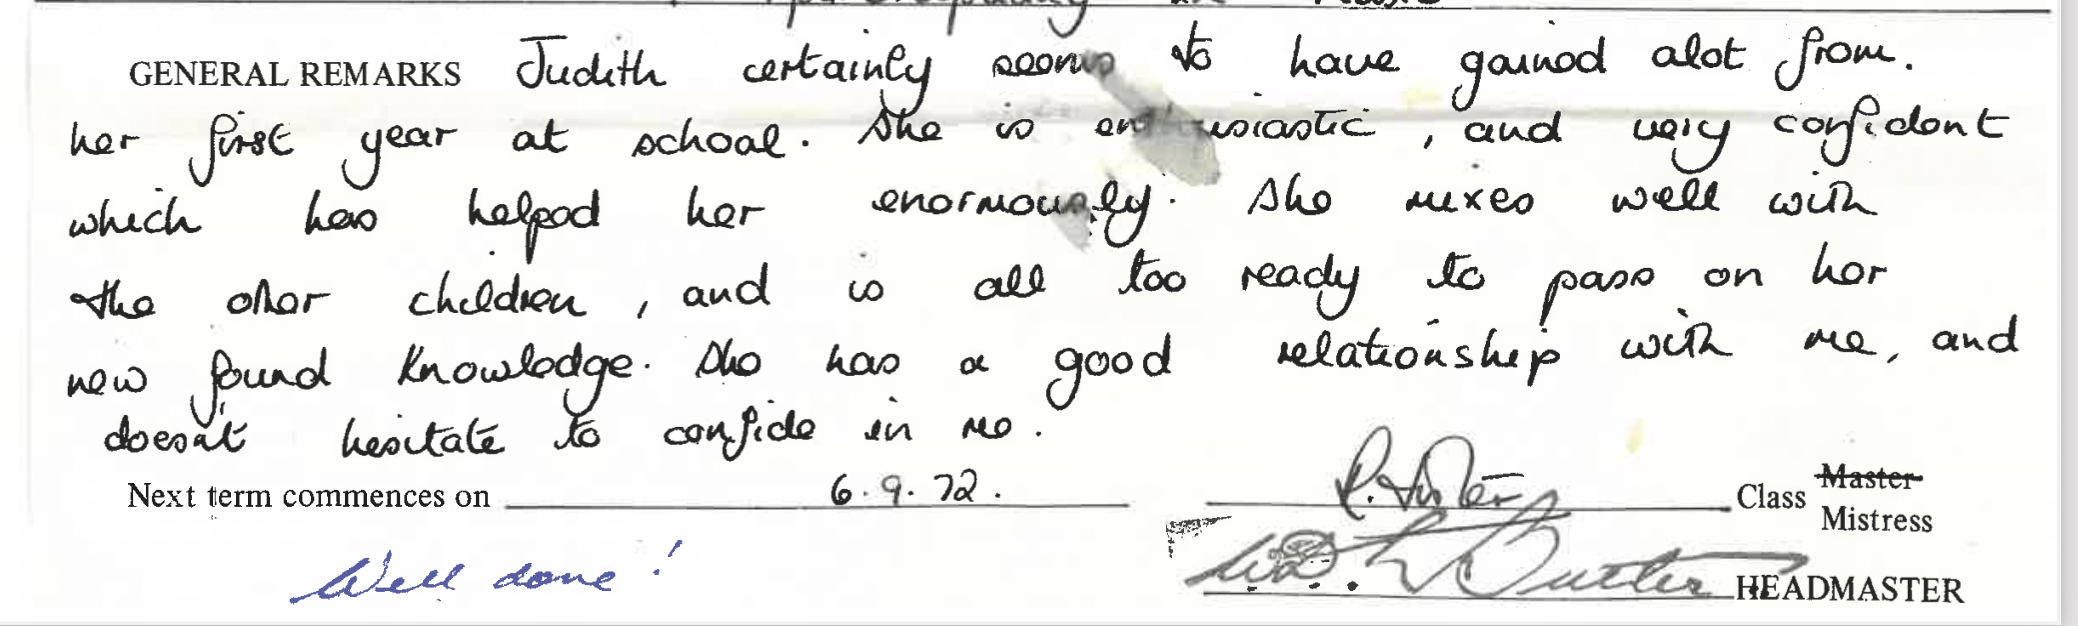 GENERAL REMARKS Judith certainly seems to have gained alot from.
her first year at school. She is enthusiastic, and very confident
which has helped her enormously. She mixes well with
the other children, and is all too ready to pass on her
new found knowledge. She has a good relationship with me, and
doesn't hesitate to confide in me.
Next term commences on 6.9.72. Class Master
Mistress
Well done!
HEADMASTER